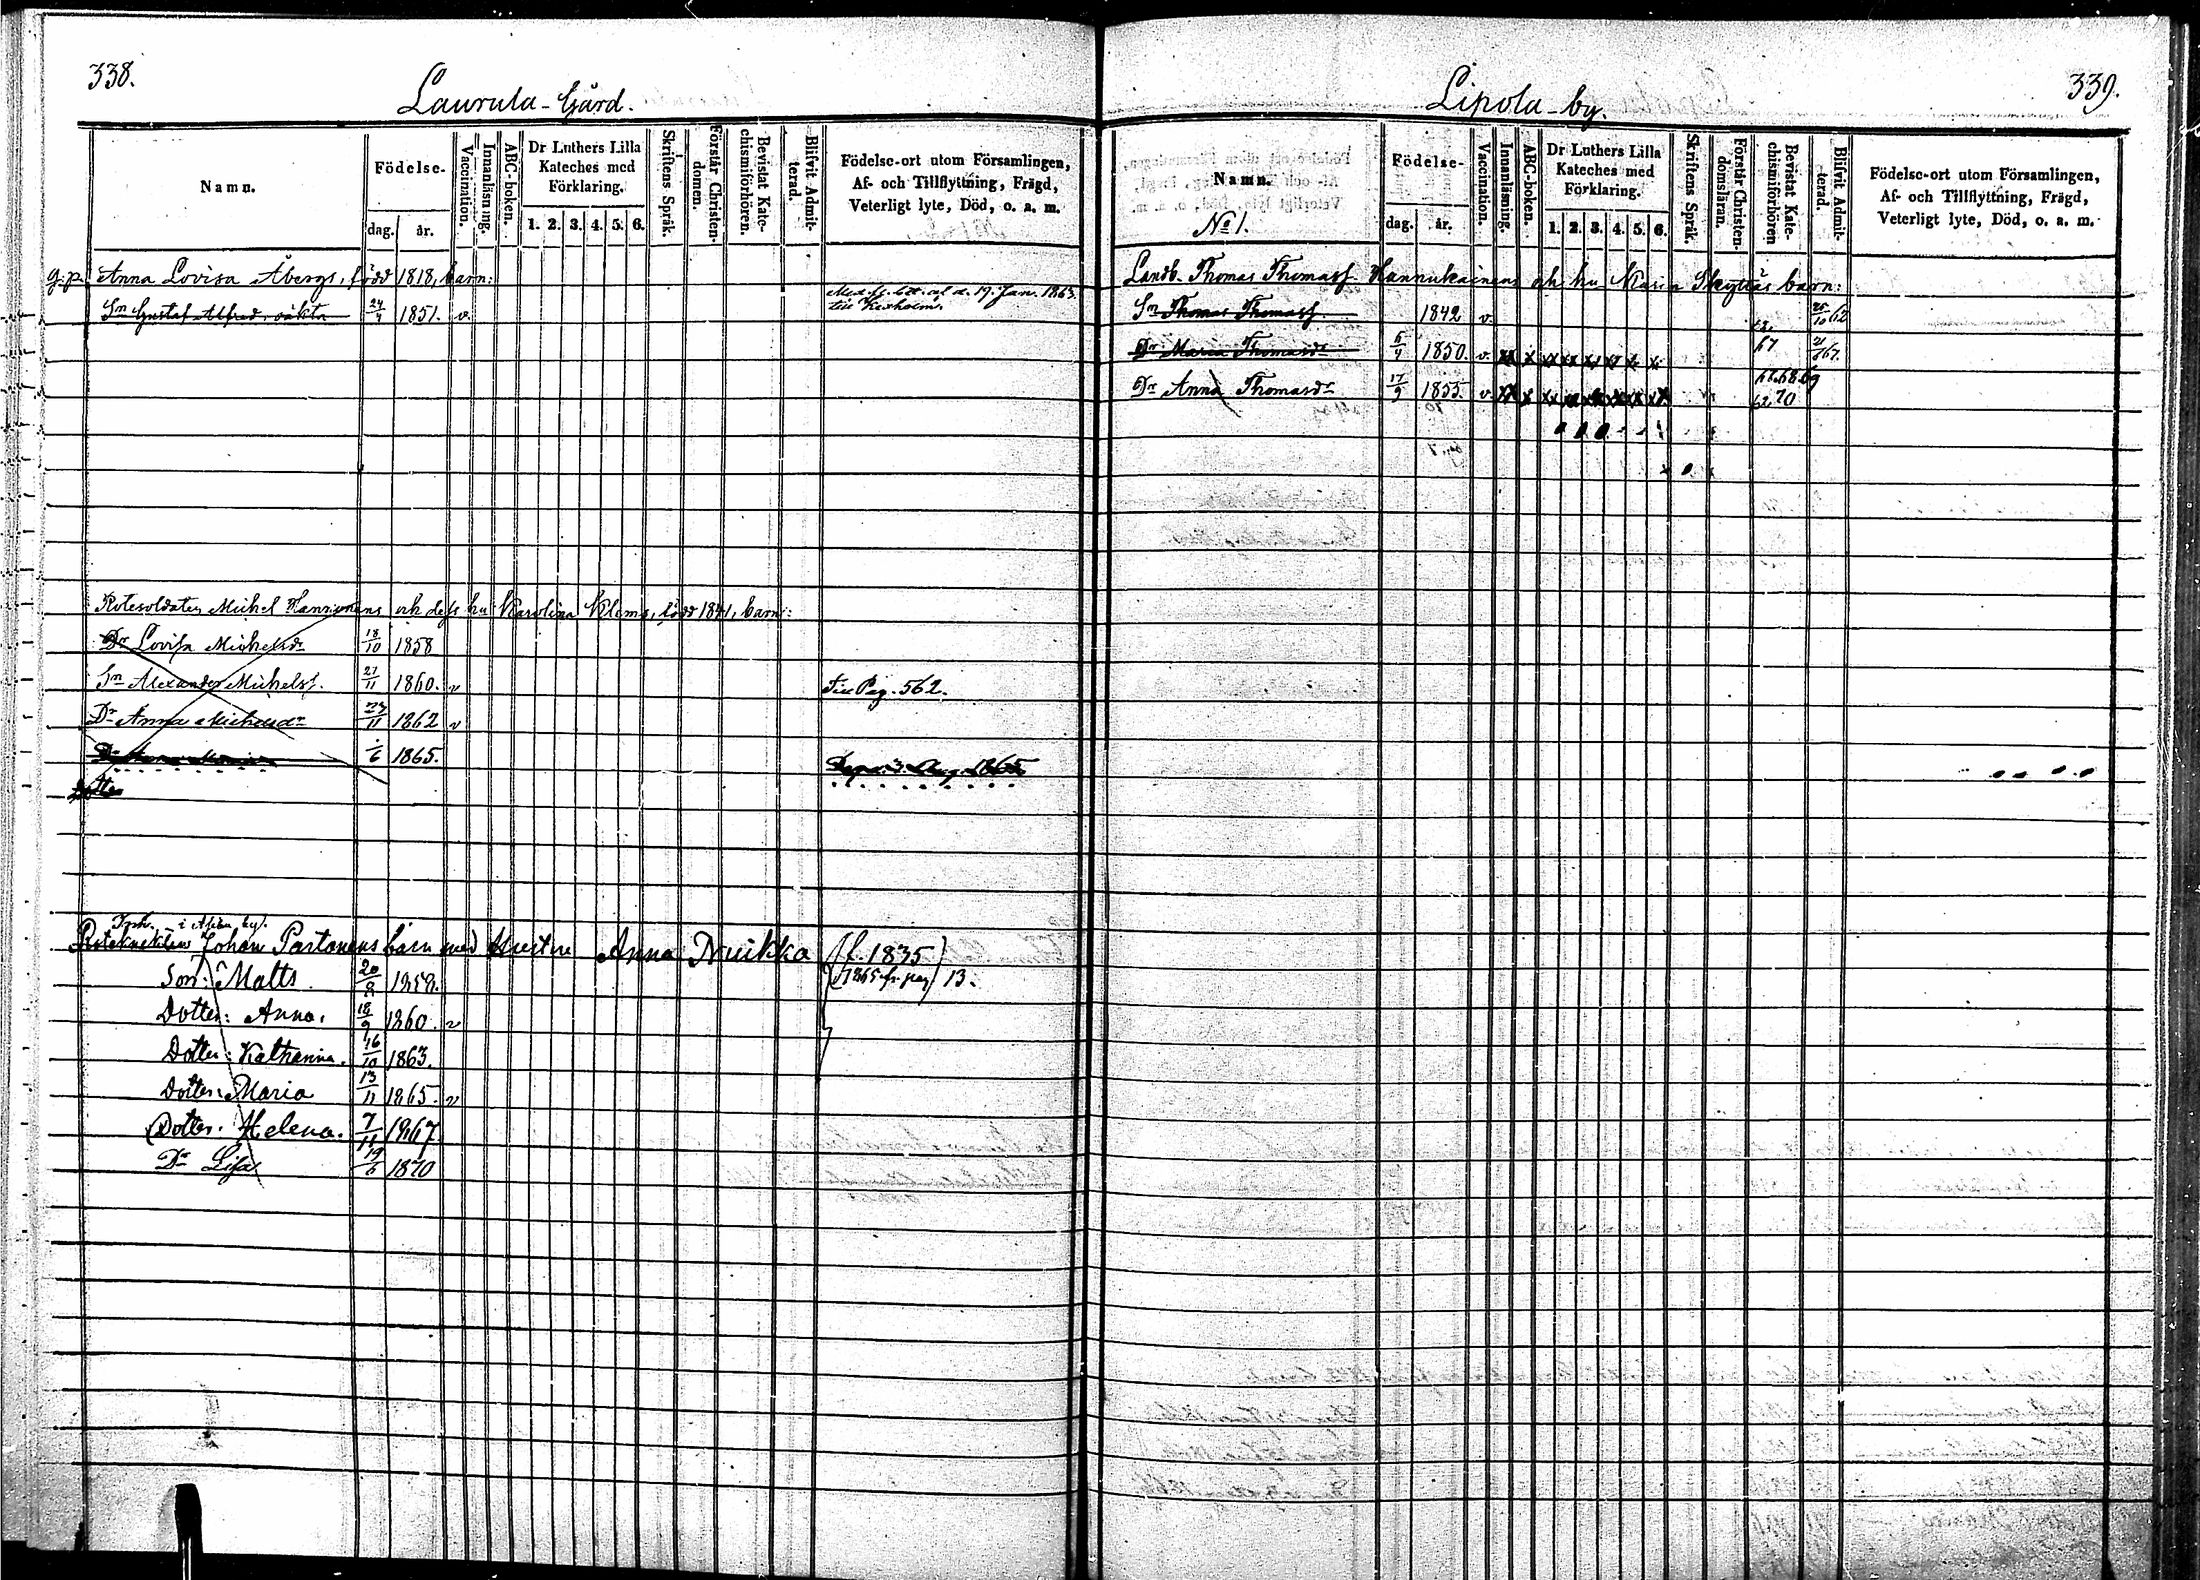 338.
Laurula-Gård.
Namn.
Födelse-
dag. år.
Vaccination.
Innanläsning.
ABC-boken.
Dr Luthers Lilla
Kateches med
Förklaring.
1. 2. 3. 4. 5. 6.
Skriftens Språk.
Förstår Christen-
domen.
Bevistat Kate-
chismiförhören.
Blifvit Admit-
terad.
Födelse-ort utom Församlingen,
Af- och Tillflyttning, Frägd,
Veterligt lyte, Död, o. a. m.
Anna Lovisa Åbergs, född 1818, barn:
Sn Gustaf Alfred oäkta 24/4 1851. v. d. 19. Jan. 1863. till Kexholm.
Rotesoldaten Michel och dess hu Karolina Klems, född 1841, barn:
Dr Lovisa Michelsdr 18/10 1858
Sn Alexander Michelsf. 21/11 1860. v Pag. 562.
Dr Anna Michelsdr 23/11 1862 v
Dr /6 1865. Aug. 1865
Dotter
Inh. i by.
Johan Partanens barn med Hustru Anna Nuikka (f. 1835
Son: Matts 20/8 1858. (1865 fr. pag) 13.
Dotter: Anna. 18/9 1860. v
Dotter: Katharina. 16/10 1863.
Dotter: Maria 13/11 1865. v
Dotter. Helena. 7/11 1867
Dr Lisa 19/6 1870
339.
Lipola-by.
Namn.
No 1.
Födelse-
dag. år.
Vaccination.
Innanläsning.
ABC-boken.
Dr Luthers Lilla
Kateches med
Förklaring.
1. 2. 3. 4. 5. 6.
Skriftens Språk.
Förstår Christen-
domsläran.
Bevistat Kate-
chismiförhören
Blifvit Admit-
terad.
Födelse-ort utom Församlingen,
Af- och Tillflyttning, Frägd,
Veterligt lyte, Död, o. a. m.
Landb. Thomas Thomasf. Hannukainens och hu Maria Skyttäs barn:
Sn Thomas Thomasf. 1842 v. 62. 25/10 62
Dr Maria Thomasdr 5/4 1850. v. 67 67.
Dr Anna Thomasdr 17/9 1855. v 67.68.69
62.70